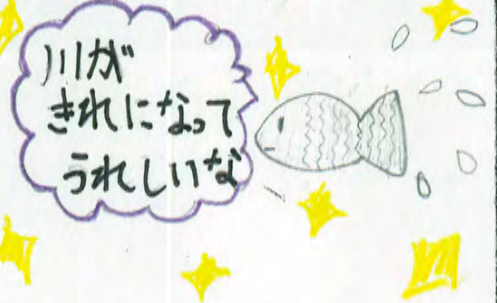 川が
きれになって
うれしいな